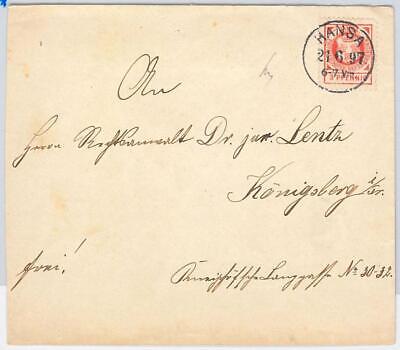 HANSA
21 6 97
6-7 V.
PFENNIG
An
Herrn Rechtsanwalt Dr. jur. Lentz
Königsberg i/Pr.
frei!
Kneiphöfsche Langgasse No 30-32.